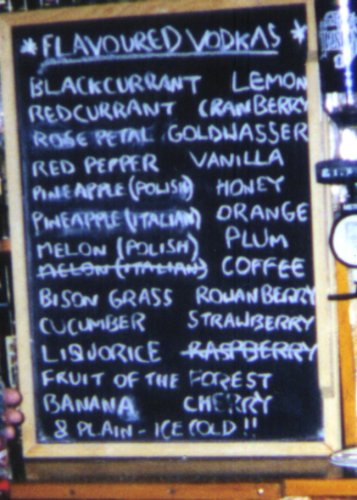 * FLAVOURED VODKAS *
BLACKCURRANT LEMON
REDCURRANT CRANBERRY
ROSE PETAL GOLDWASSER
RED PEPPER VANILLA
PINEAPPLE (POLISH) HONEY
PINEAPPLE (ITALIAN) ORANGE
MELON (POLISH) PLUM
MELON (ITALIAN) COFFEE
BISON GRASS ROWANBERRY
CUCUMBER STRAWBERRY
LIQUORICE RASPBERRY
FRUIT OF THE FOREST
BANANA CHERRY
& PLAIN - ICE COLD !!